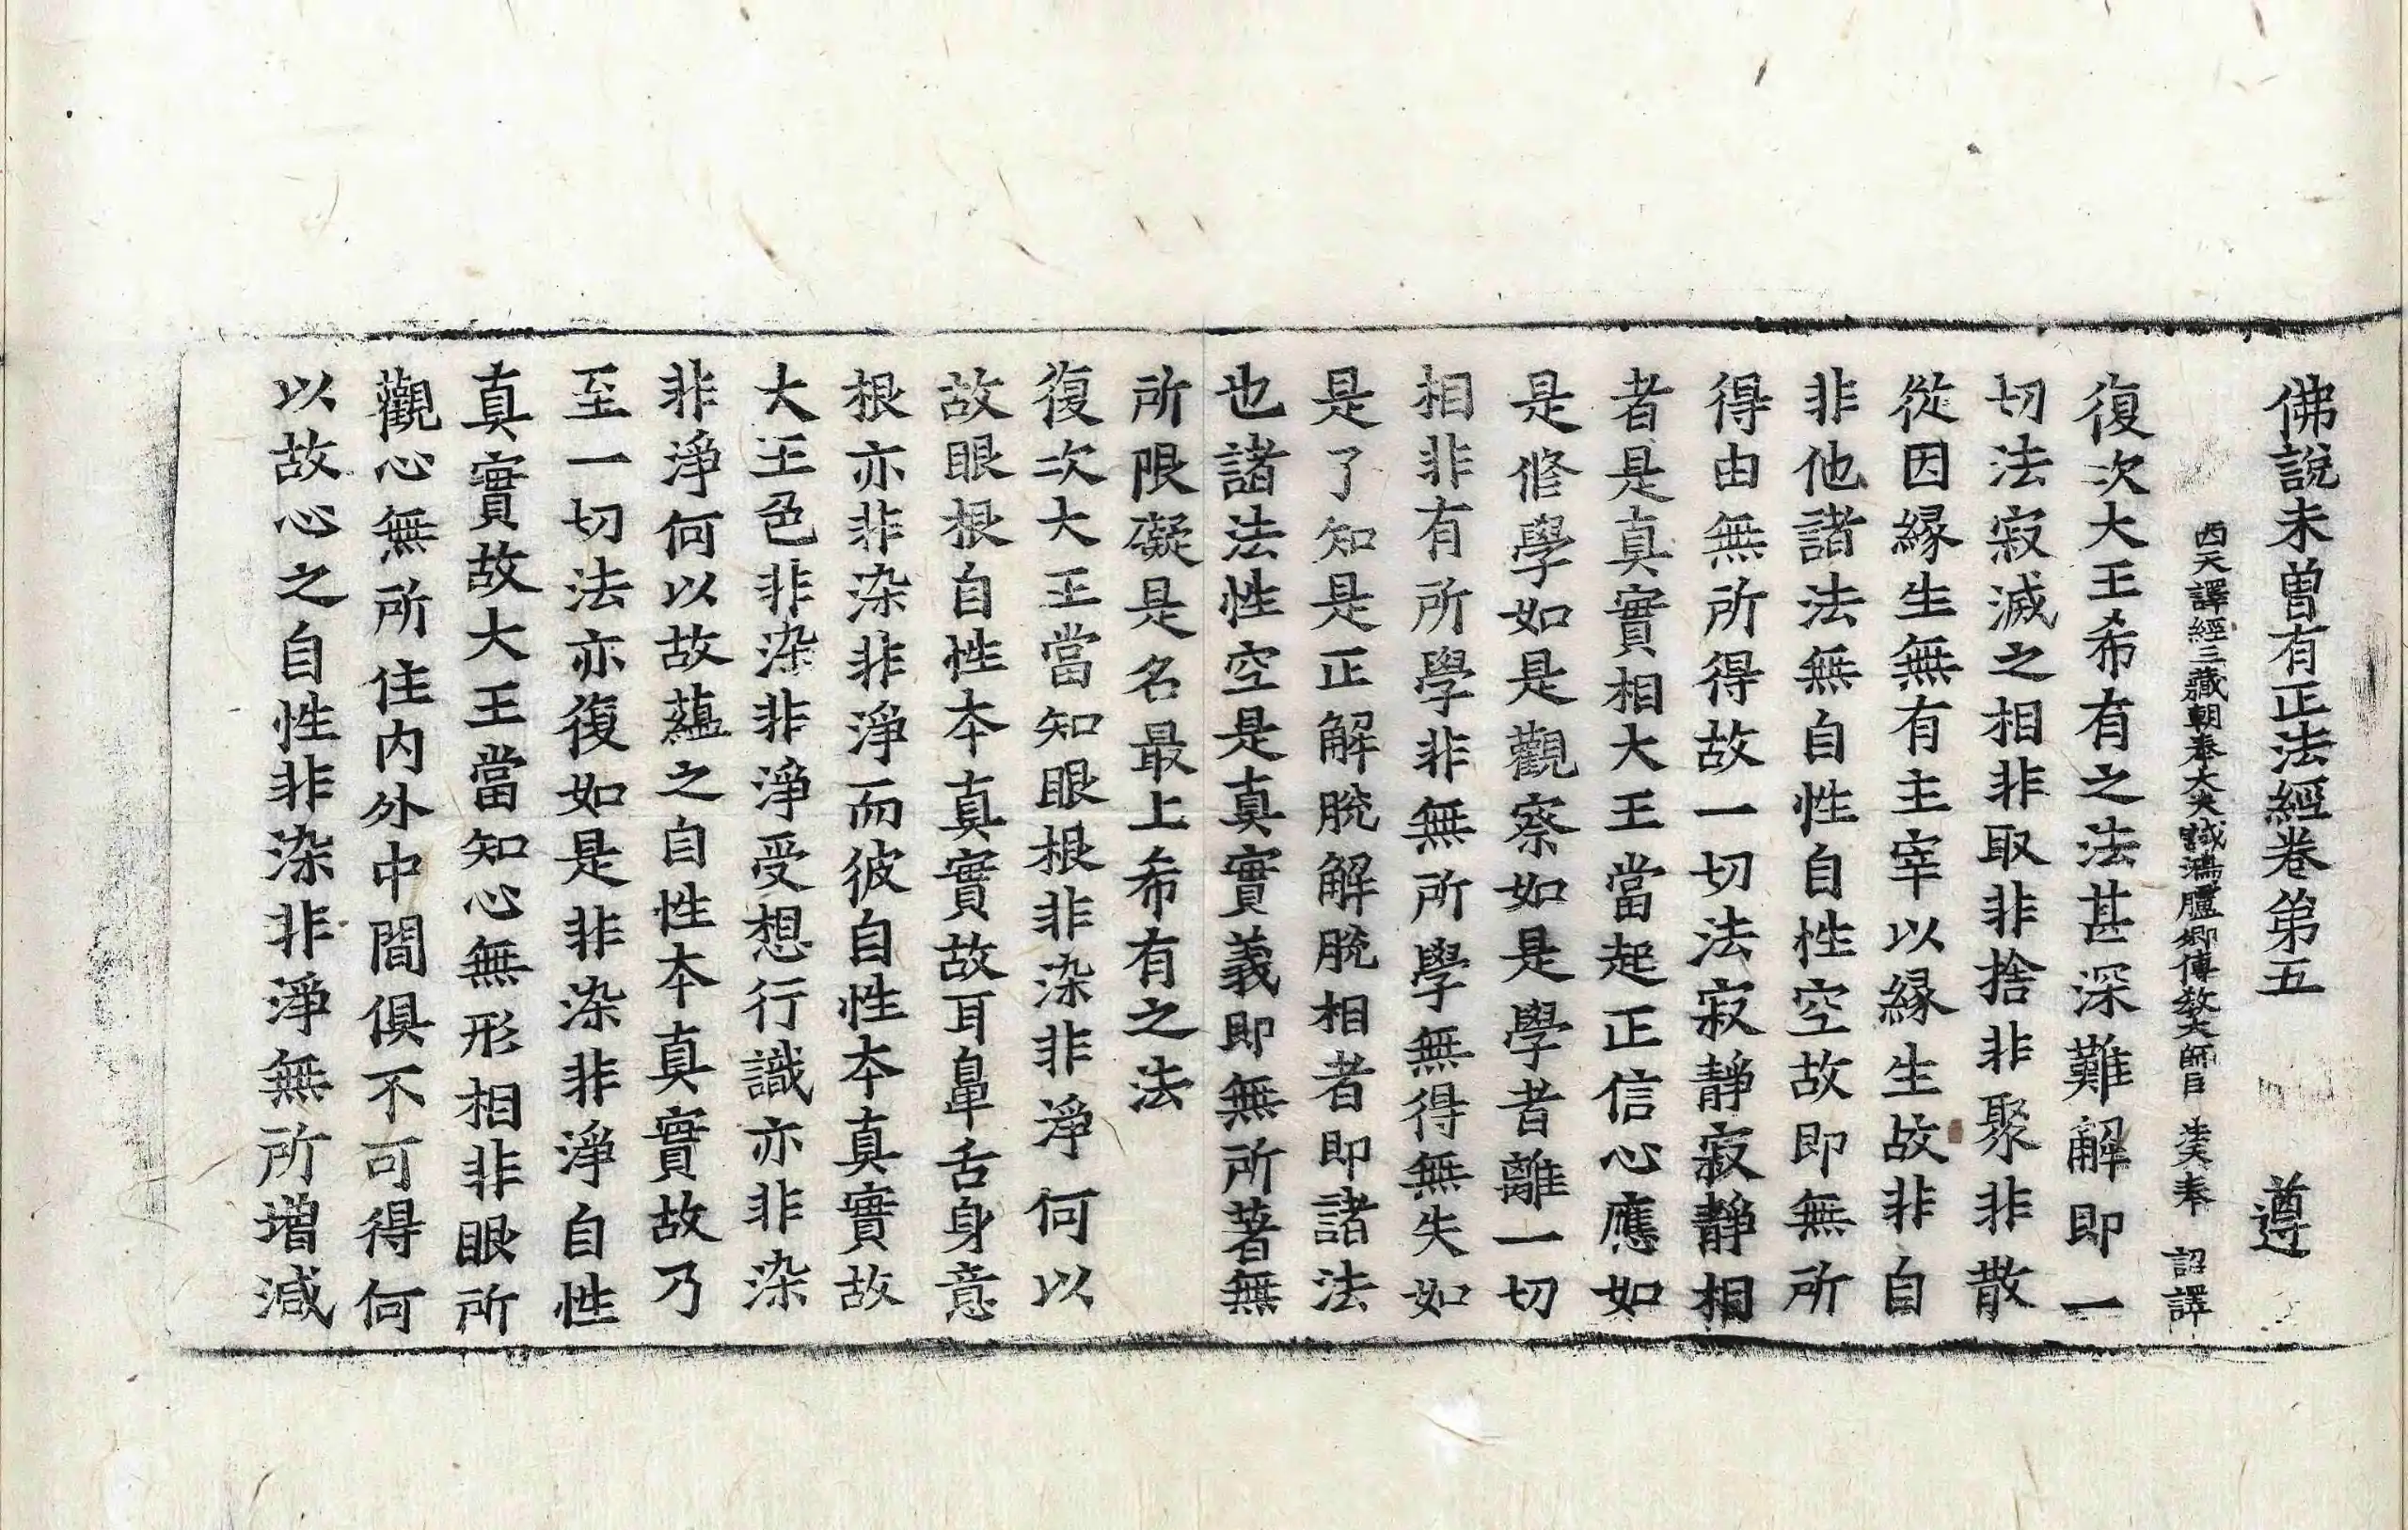 佛說未曾有正法經卷第五 遵
西天譯經三藏朝奉大夫試鴻臚卿傳教大師臣 法天奉 詔譯
復次大王希有之法甚深難解即一
切法寂滅之相非取非捨非聚非散
從因緣生無有主宰以緣生故非自
非他諸法無自性自性空故即無所
得由無所得故一切法寂靜寂靜相
者是真實相大王當起正信心應如
是修學如是觀察如是學者離一切
相非有所學非無所學無得無失如
是了知是正解脫解脫相者即諸法
也諸法性空是真實義即無所著無
所限礙是名最上希有之法
復次大王當知眼根非染非淨何以
故眼根自性本真實故耳鼻舌身意
根亦非染非淨而彼自性本真實故
大王色非染非淨受想行識亦非染
非淨何以故蘊之自性本真實故乃
至一切法亦復如是非染非淨自性
真實故大王當知心無形相非眼所
觀心無所住內外中間俱不可得何
以故心之自性非染非淨無所增減